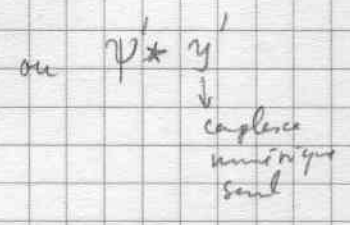 ou ψ'* y'
↓
complexe
numérique
seul